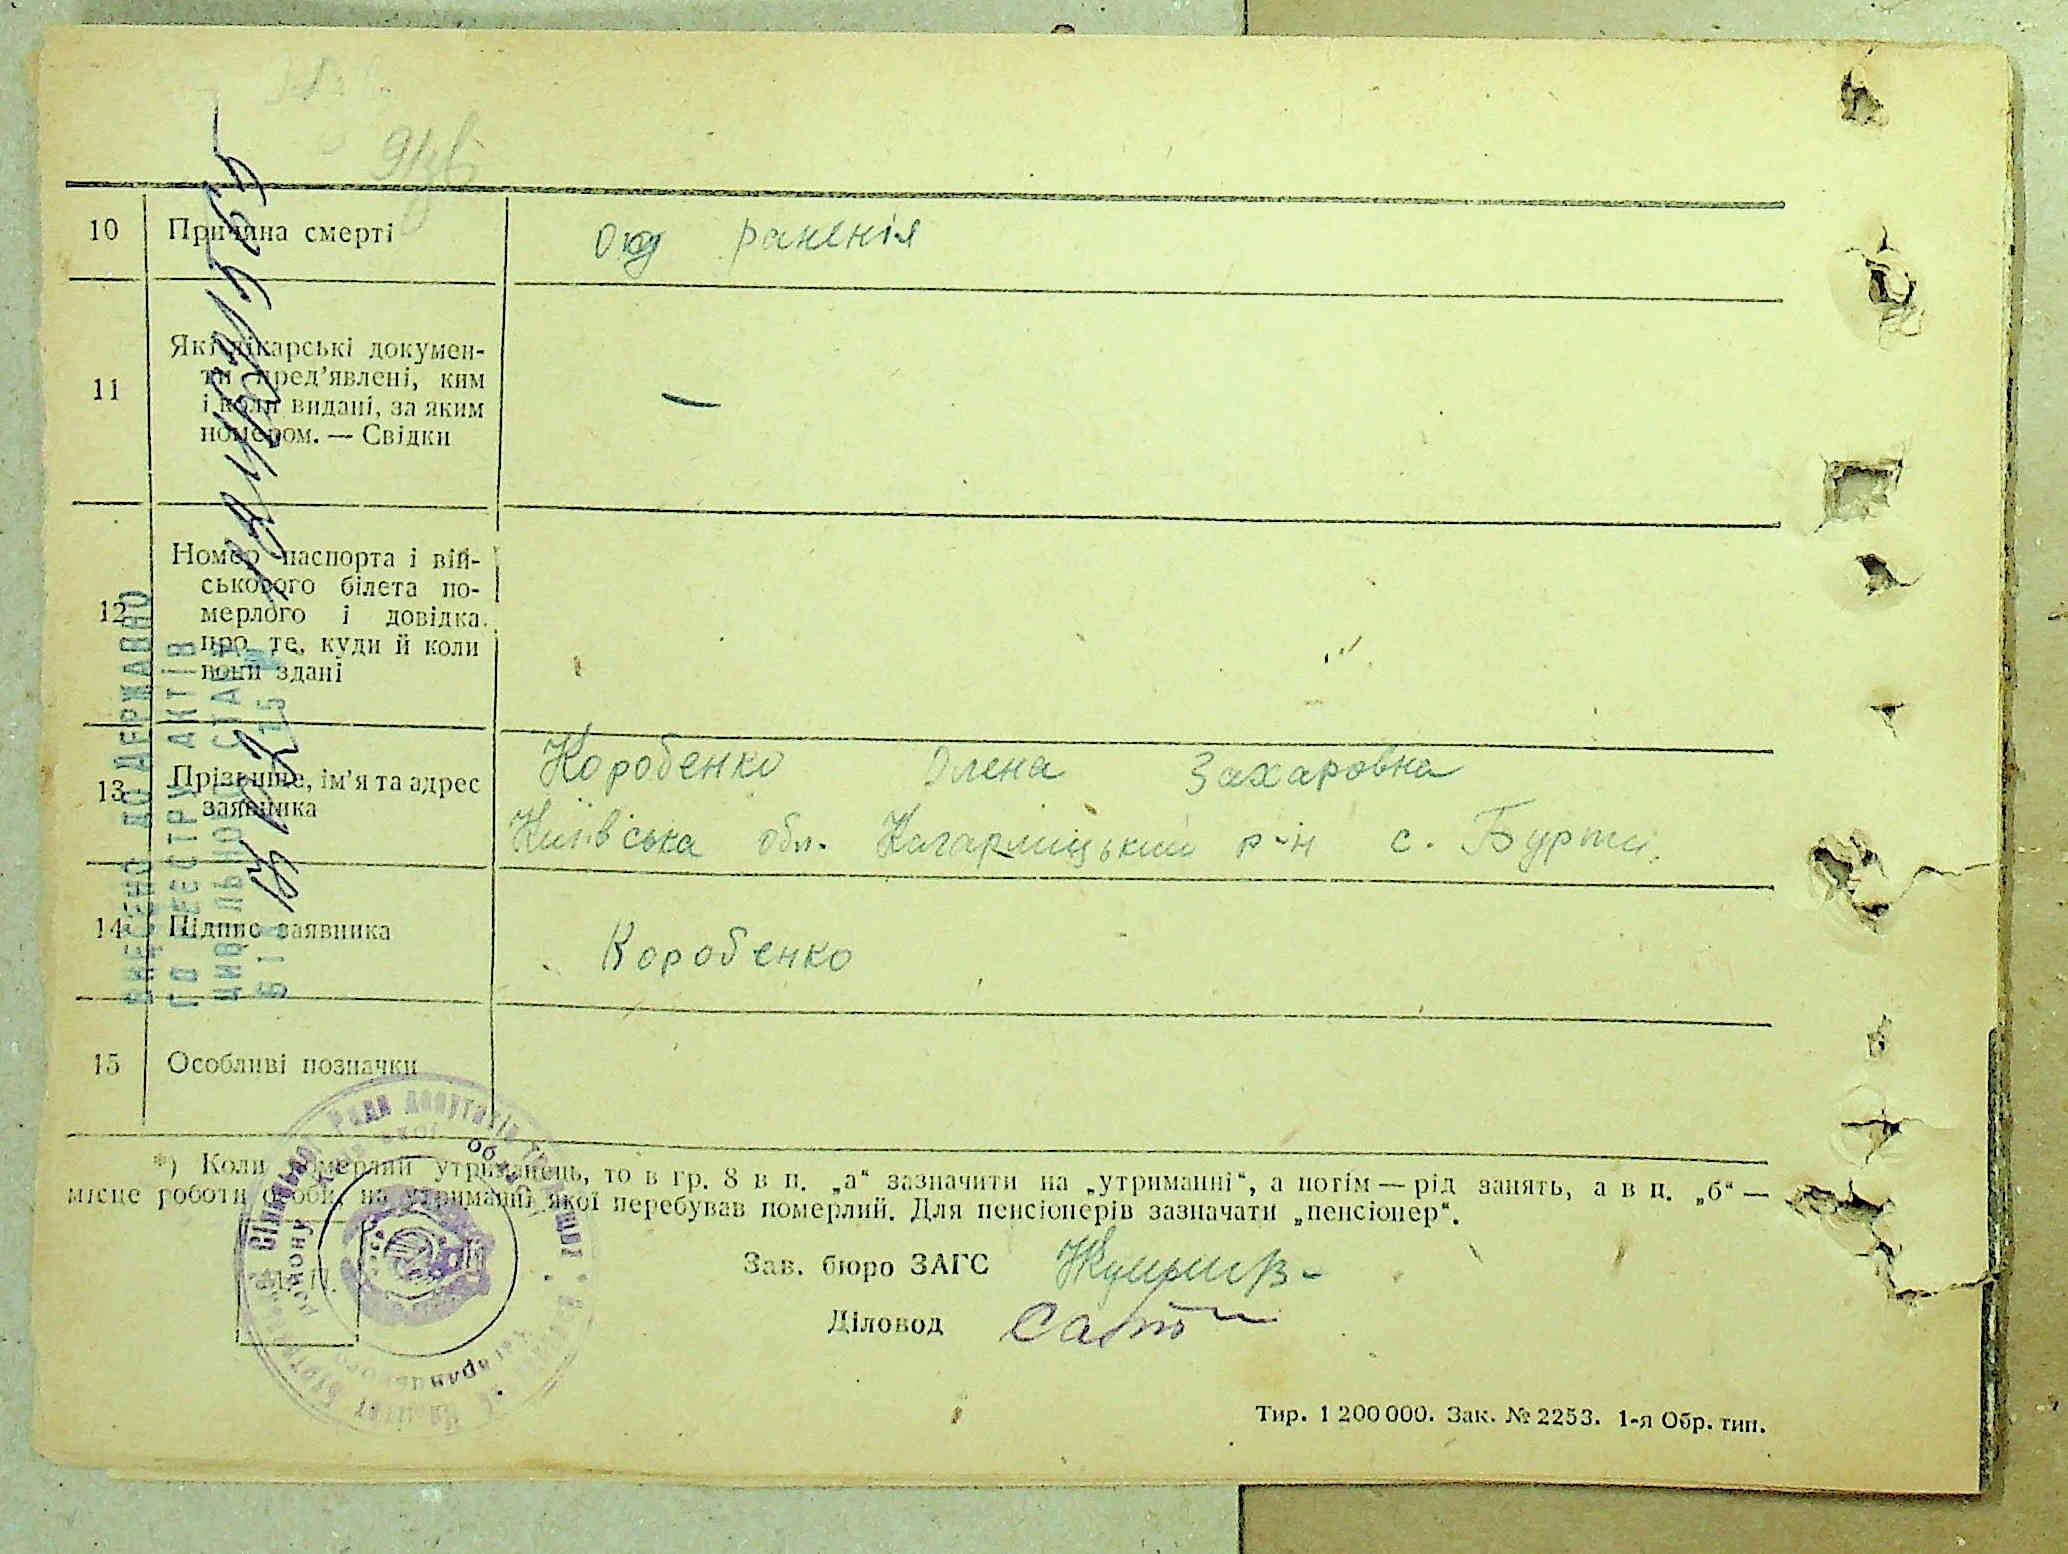 10 Причина смерті
од раненія
11 Які лікарські докумен-
ти пред'явлені, ким
і коли видані, за яким
номером. — Свідки
—
12 Номер паспорта і вій-
ськового білета по-
мерлого і довідка
про те, куди й коли
вони здані
13 Прізвище, ім'я та адрес
заявника
Коробенко Олена Захаровна
Київська обл. Кагарлицький р-н с. Бурти
14 Підпис заявника
Коробенко
15 Особливі позначки
ВНЕСЕНО ДО ДЕРЖАВНО
ГО РЕЄСТРУ АКТІВ
ЦИВІЛЬНОГО СТАНУ
*) Коли померлий утриманець, то в гр. 8 в п. „а“ зазначити на „утриманні“, а потім — рід занять, а в п. „б“ —
місце роботи особи, на утриманні якої перебував померлий. Для пенсіонерів зазначати „пенсіонер“.
М. П.
Зав. бюро ЗАГС
Діловод
Тир. 1 200 000. Зак. № 2253. 1-я Обр. тип.